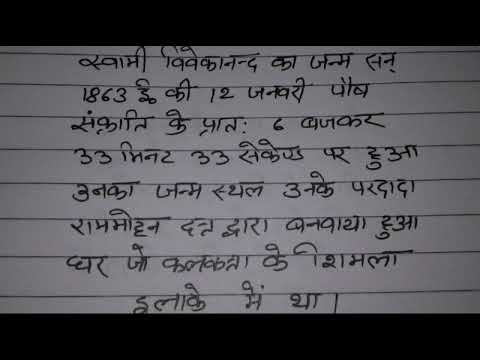 स्वामी विवेकानन्द का जन्म सन्
1863 ई० की 12 जनवरी पौष
संक्राति के प्रातः 6 बजकर
33 मिनट 33 सेकेण्ड पर हुआ
उनका जन्म स्थल उनके परदादा
राममोहन दत्त द्वारा बनवाया हुआ
घर जो कलकत्ता के शिमला
इलाके में था।